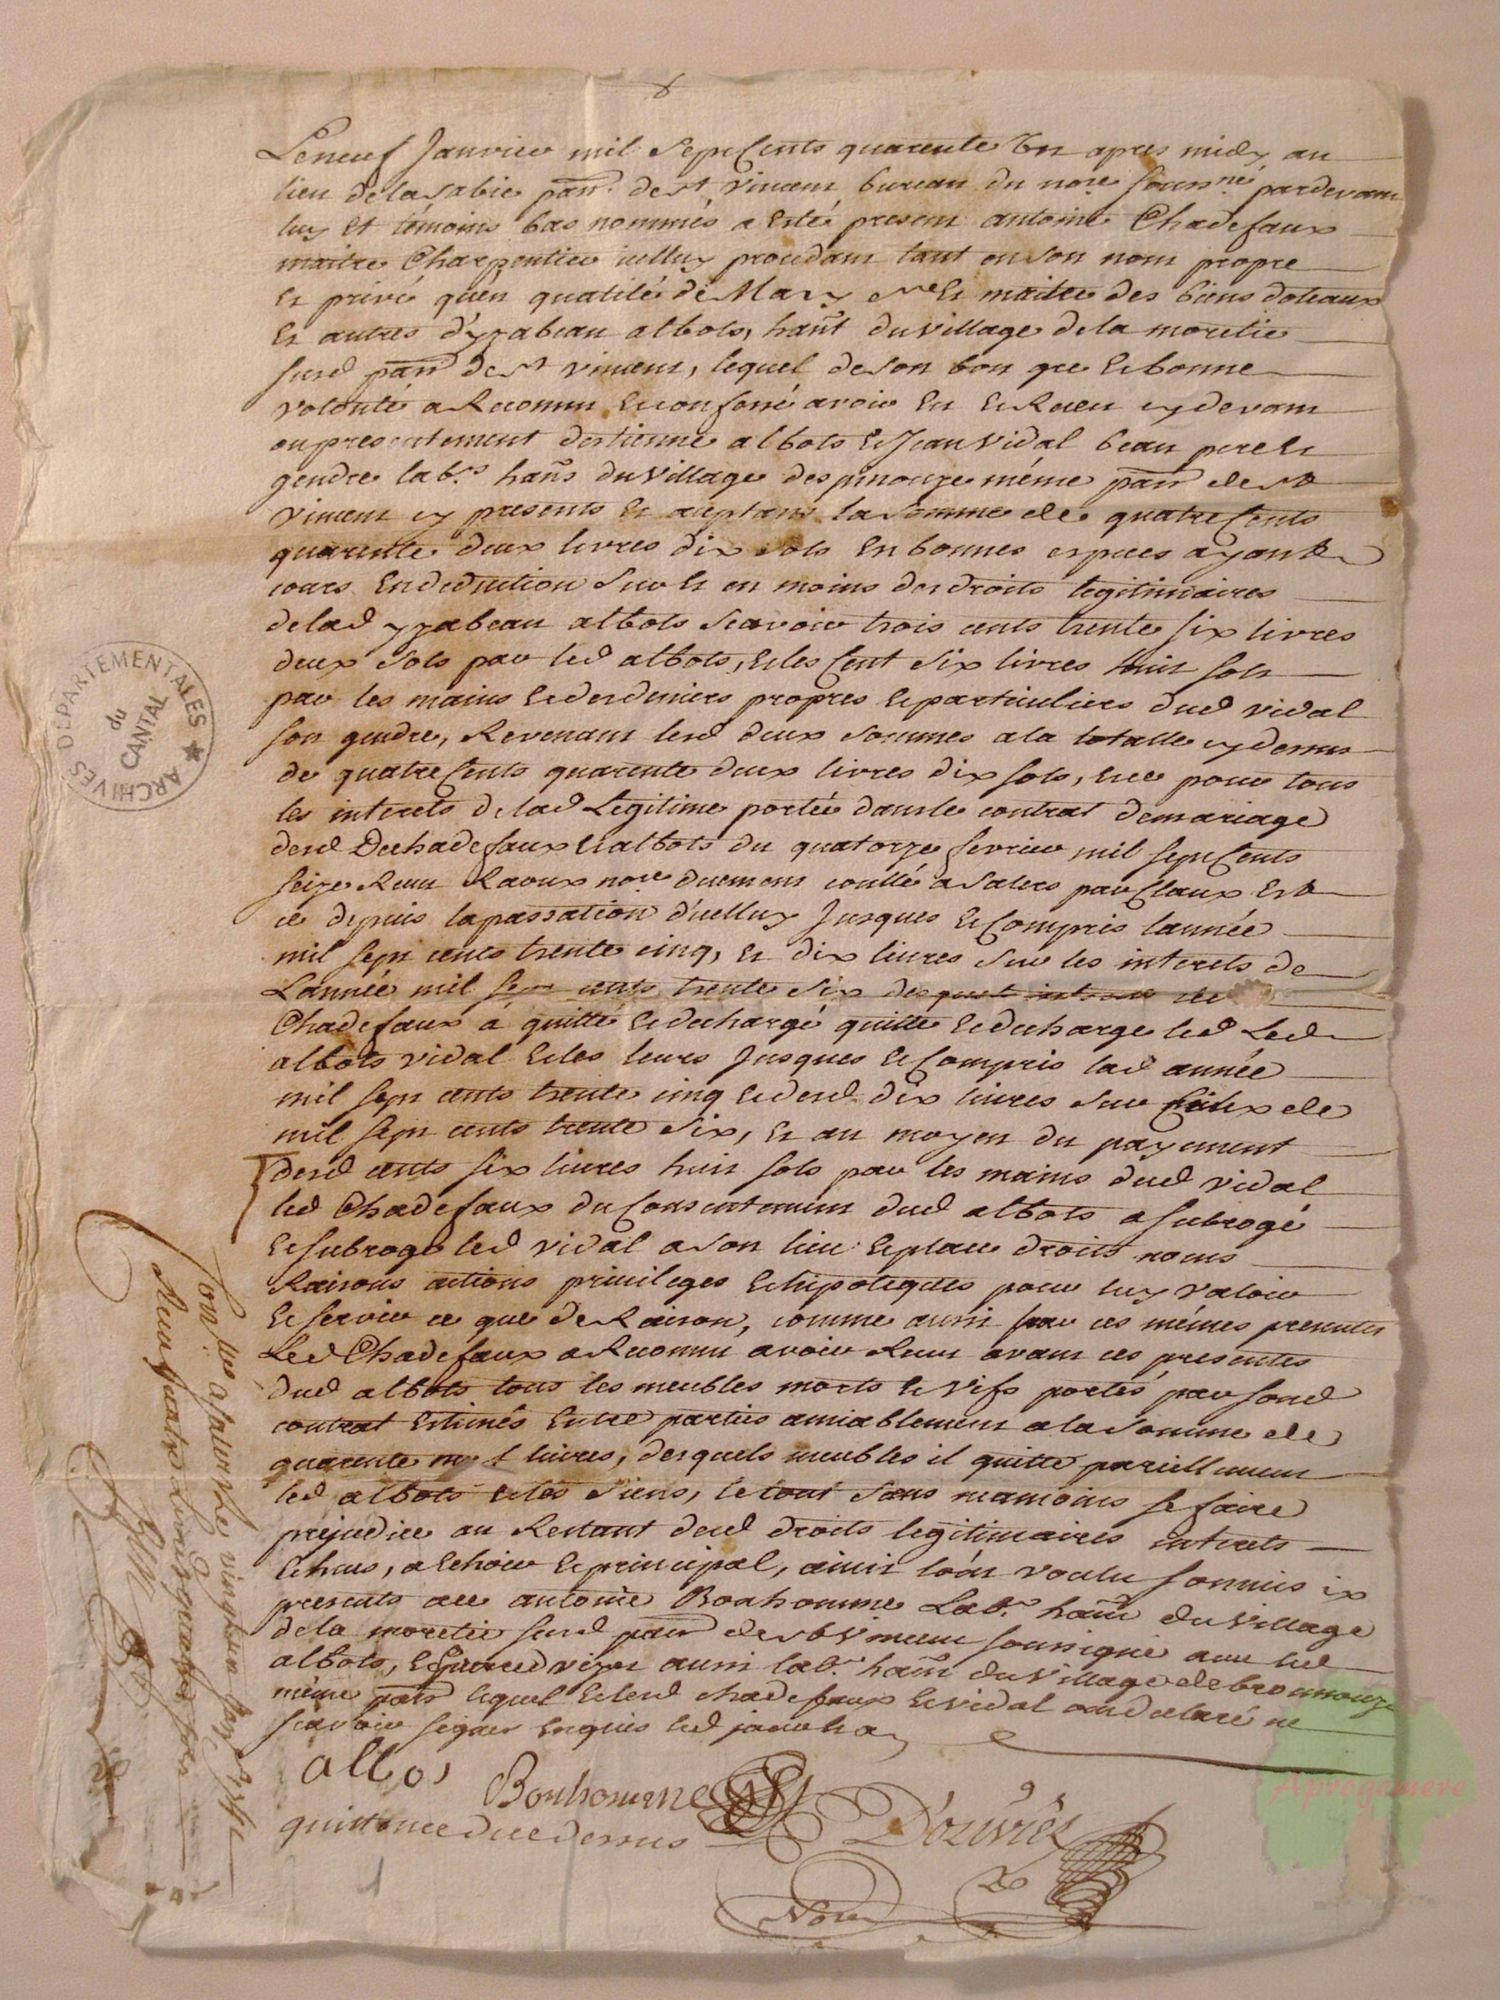 Le neuf Janvier mil sept Cents quarente Un apres midy au
lieu de la sabie parr. de st vincent bureau du nore soussné pardevant
luy et témoins bas nommés a esté present antoine Chadefaux
maitre Charpentier icelluy procedant tant en son nom propre
et privé qu'en qualité de Mary et maitre des biens dotaux
et autres d'yzabeau albots, hant du village de la moretie
susd parr de st vincent, lequel de son bon gre et bonne
volonté a Reconnu et confessé avoir Eu et Receu cy devant
ou presentement destienne albots et Jean vidal beau pere et
gendre labrs hans du village despinouze méme parr de st
vincent cy presents et aceptans la somme de quatre Cents
quarente deux livres dix sols en bonnes especes ayant
cours En deduction sur et en moins des droits legitimaires
de lad yzabeau albots scavoir trois cents trente six livres
deux sols par led albots, et les Cent six livres huit sols
par les mains et des deniers propres et particuliers dud vidal
son gendre, Revenant lesd deux sommes a la totalle cy dessus
de quatre Cents quarente deux livres dix sols, et ce pour tous
les interets de lad Legitime portée dans le contrat de mariage
desd Dechadefaux et albots du quatorze fevrier mil sept Cents
seize Receu Raoux nore duement conllé a salers par Claux et
ce depuis la passation d'icelluy Jusques et Compris lannée
mil sept cents trente cinq, et dix livres sur les interets de
Lannée mil sept cents trente six desquels interets led
Chadefaux á quitté et dechargé quitte et decharge led Led
albots vidal et les leurs Jusques et Compris lad année
mil sept cents trente cinq et desd dix livres sur Ceux de
mil sept cents trente six, et au moyen du payement
desd cents six livres huit sols par les mains dud vidal
led Chadefaux du Consentement dud albots a subrogé
et subroge led vidal a son lieu et place droits noms
Raisons actions privileges et hipoteques pour luy valoir
et servir ce que de Raison, comme aussi par ces mémes presentes
Led Chadefaux a Reconnu avoir Receu avant ces presentes
dud albots tous les meubles morts et vifs portés par sond
contrat estimés Entre parties amiablement a la somme de
quarente livres, desquels meubles il quitte pareillement
led albots et les siens, le tout sans neamoins se faire
prejudice au Restant desd droits legitimaires interets
Echeus, a Echoir et principal, ainsi lont voulu soumis
presents ace antoine Bonhomme Labr hant du village
de la moretie susd parr de st vincent soussigné avec led
albots, et vizet aussi labr hant du village de
méme parr lequel et lesd chadefaux et vidal ont declaré ne
scavoir signer Enquis led jour
albos
Bonhomme
D'ouvrier
quittance de ce dessus
Nore
Conlle a salers le vingt
Receu quatre livres
ARCHIVES DEPARTEMENTALES du CANTAL
Aprogemere